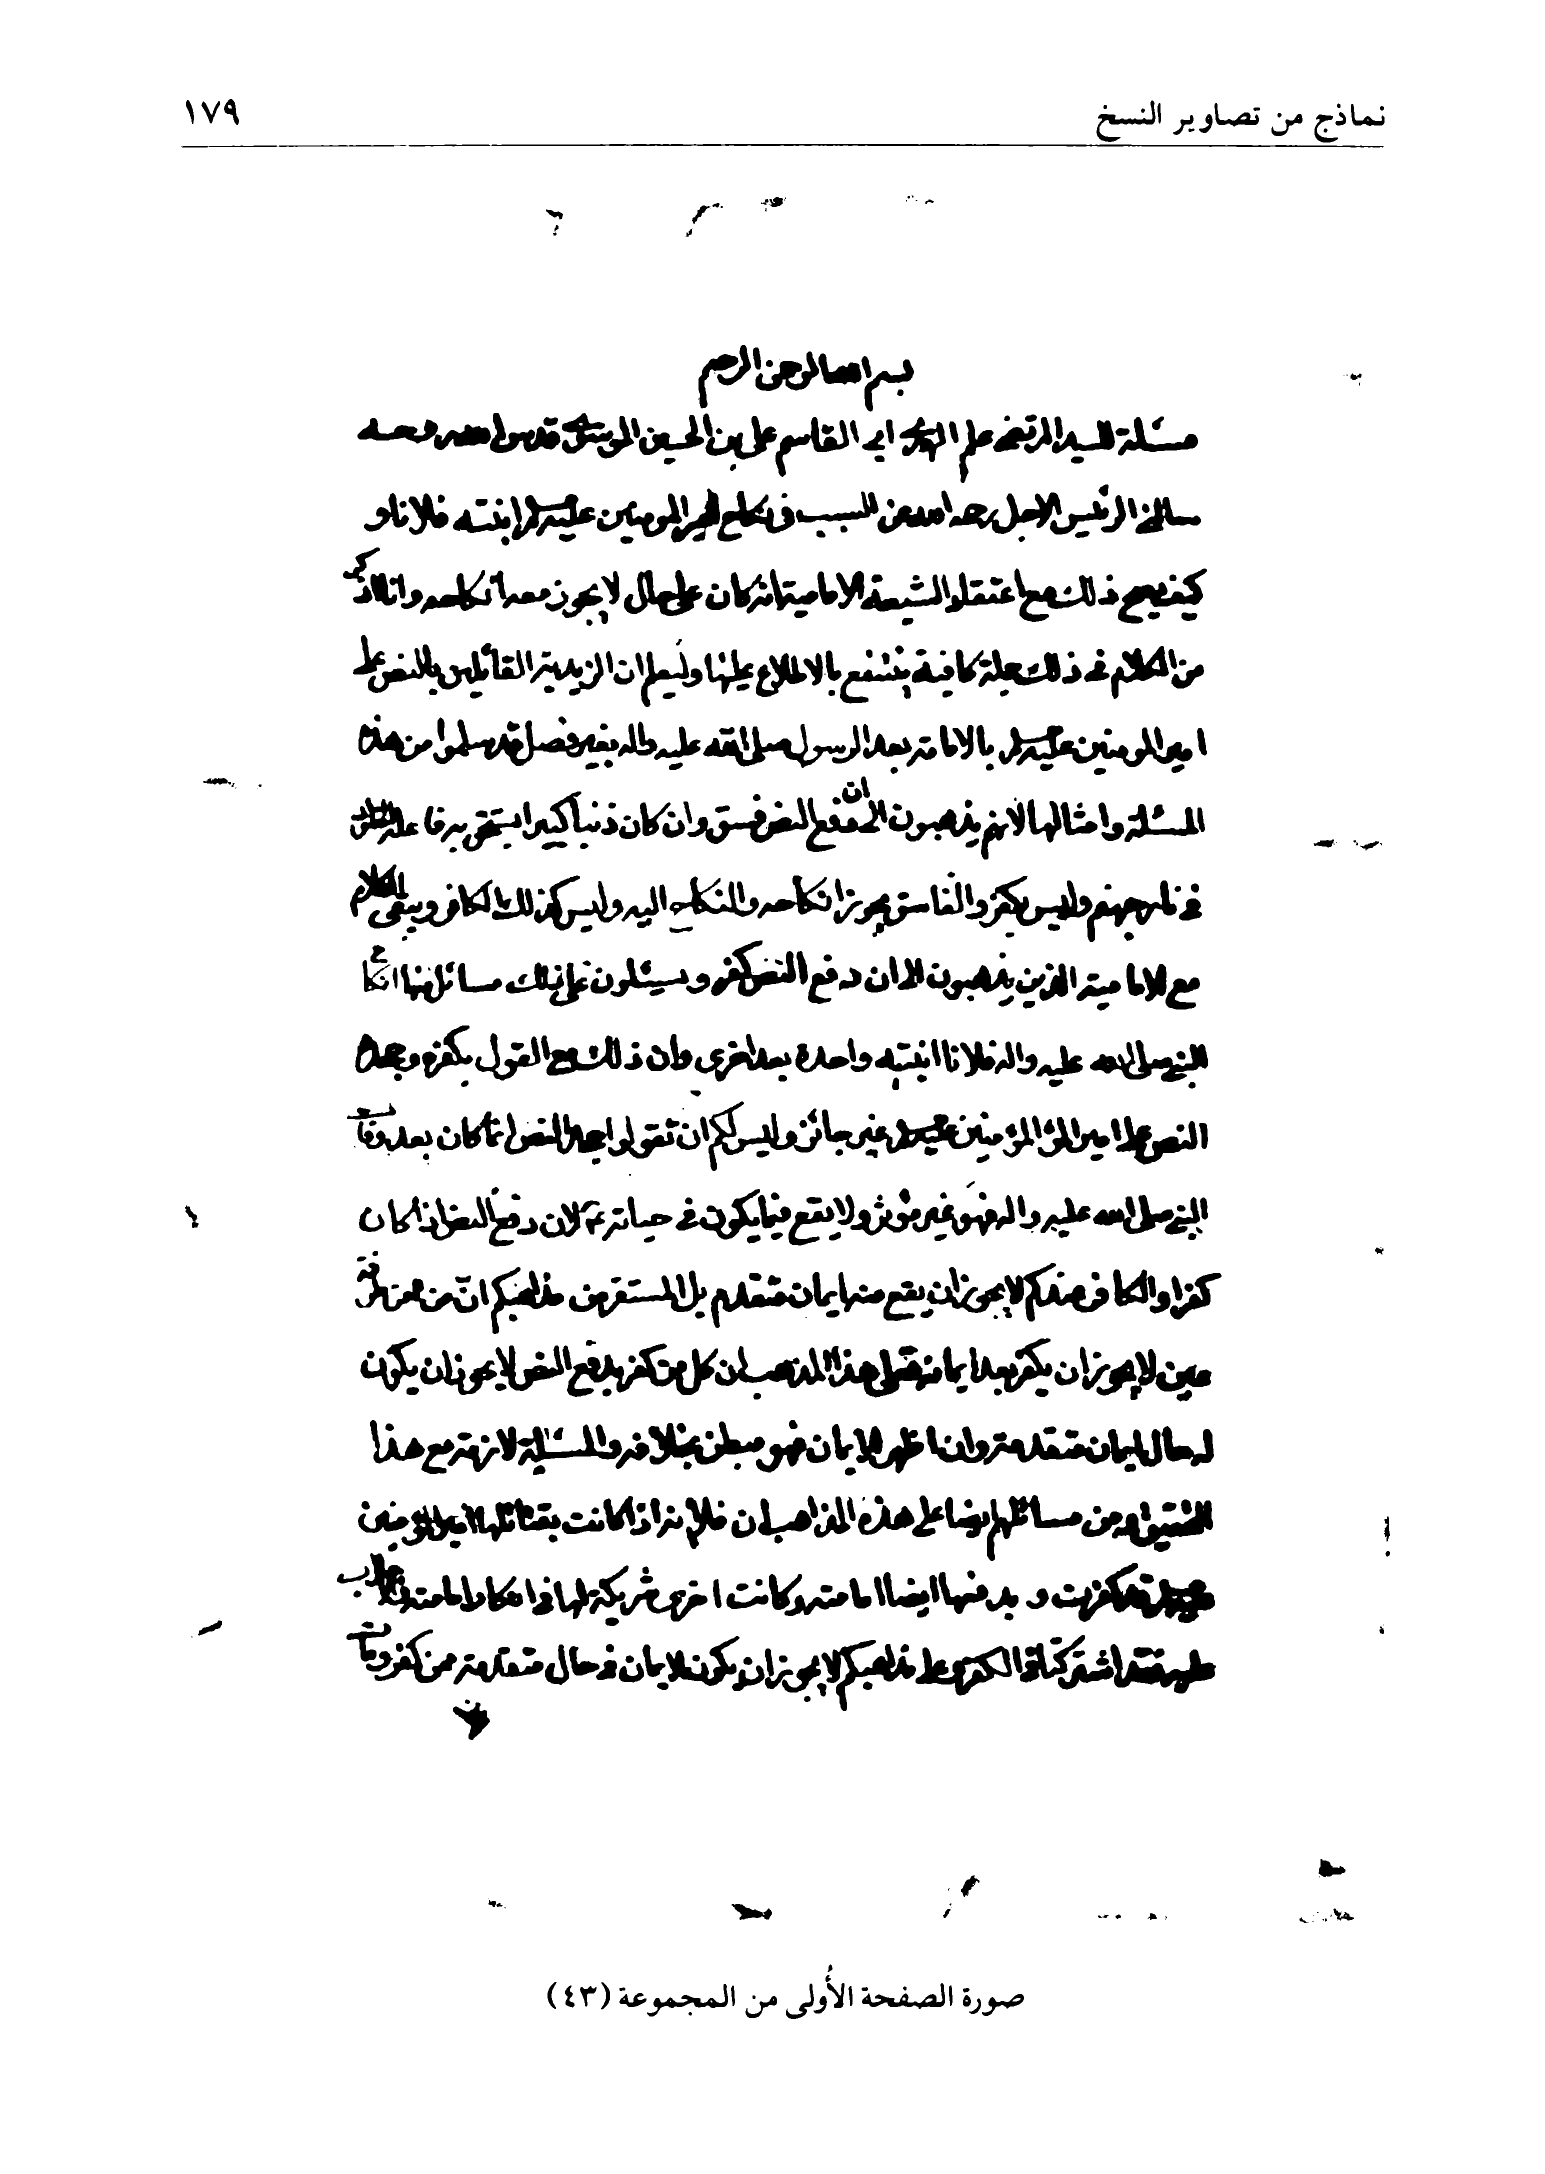 نماذج من تصاوير النسخ ١٧٩
بسم الله الرحمن الرحيم
مسئلة للسيد المرتضى علم الهدى ابى القاسم على بن الحسين الموسوى قدس الله روحه
سالنى الرئيس الاجل رحمه الله عن السبب فى نكاح امير المومنين عليه السلم ابنته فلانا و
كيف يصح ذلك مع اعتقاد الشيعة الامامية انه كان على حال لا يجوز معها نكاحه وانا اذكر
من الكلام فى ذلك جملة كافية ينتفع بالاطلاع عليها وليعلم ان الزيدية القائلين بالنص على
امير المومنين عليه السلم بالامامة بعد الرسول صلى الله عليه واله بغير فصل قد سلموا من هذه
المسئلة وامثالها لانهم يذهبون الى ان دفع النص فسق وان كان ذنباً كبيرا يستحق به فاعله الخلود
فى نار جهنم وليس بكفر والفاسق يجوز انكاحه والنكاح اليه وليس كذلك الكافر ويبقى الكلام
مع الامامية الذين يذهبون الى ان دفع النص كفر ويسئلون عن ذلك مسائل منها انكاح
النبى صلى الله عليه واله فلانا ابنتيه واحدة بعد اخرى وان ذلك مع القول بكفره وجحده
النص على امير المؤ المؤمنين عليه السلم غير جائز وليس لكم ان تقولوا جحد النص انما كان بعد وفاة
النبى صلى الله عليه واله فهو غير مؤثر ولا يقع فيما يكون فى حياته لان دفع النص اذا كان
كفرا والكافر عندكم لا يجوز ان يقع منه ايمان متقدم بل المستقر من مذاهبكم انّ من آمن طرفة
عين لا يجوز ان يكفر بعد ايمانه فعلى هذا المذهب ان كل من كفر بدفع النص لا يجوز ان يكون
له حال ايمان متقدمة وان اظهر الايمان فهو مبطن بخلافه والمسئلة لازمة مع هذا
ومن مسائلهم ايضا على هذه المذاهب ان فلانة اذا كانت بقتالها امير المؤمنين
عليه السلم قد كفرت و بدفعها ايضا امامته وكانت اخرى شريكة لها فى انكار امامته
عليه فقد اشتركتا فى الكفر على مذاهبكم لا يجوز ان يكون الايمان فى حال متقدمة ممن كفر ومات
صورة الصفحة الأُولى من المجموعة (٤٣)